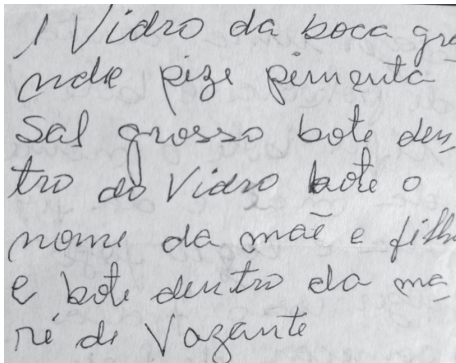 1 Vidro da boca gra
nde pize pimenta
Sal grosso bote den
tro do Vidro bote o
nome da mãe e filh
e bote dentro da ma
ré de Vazante